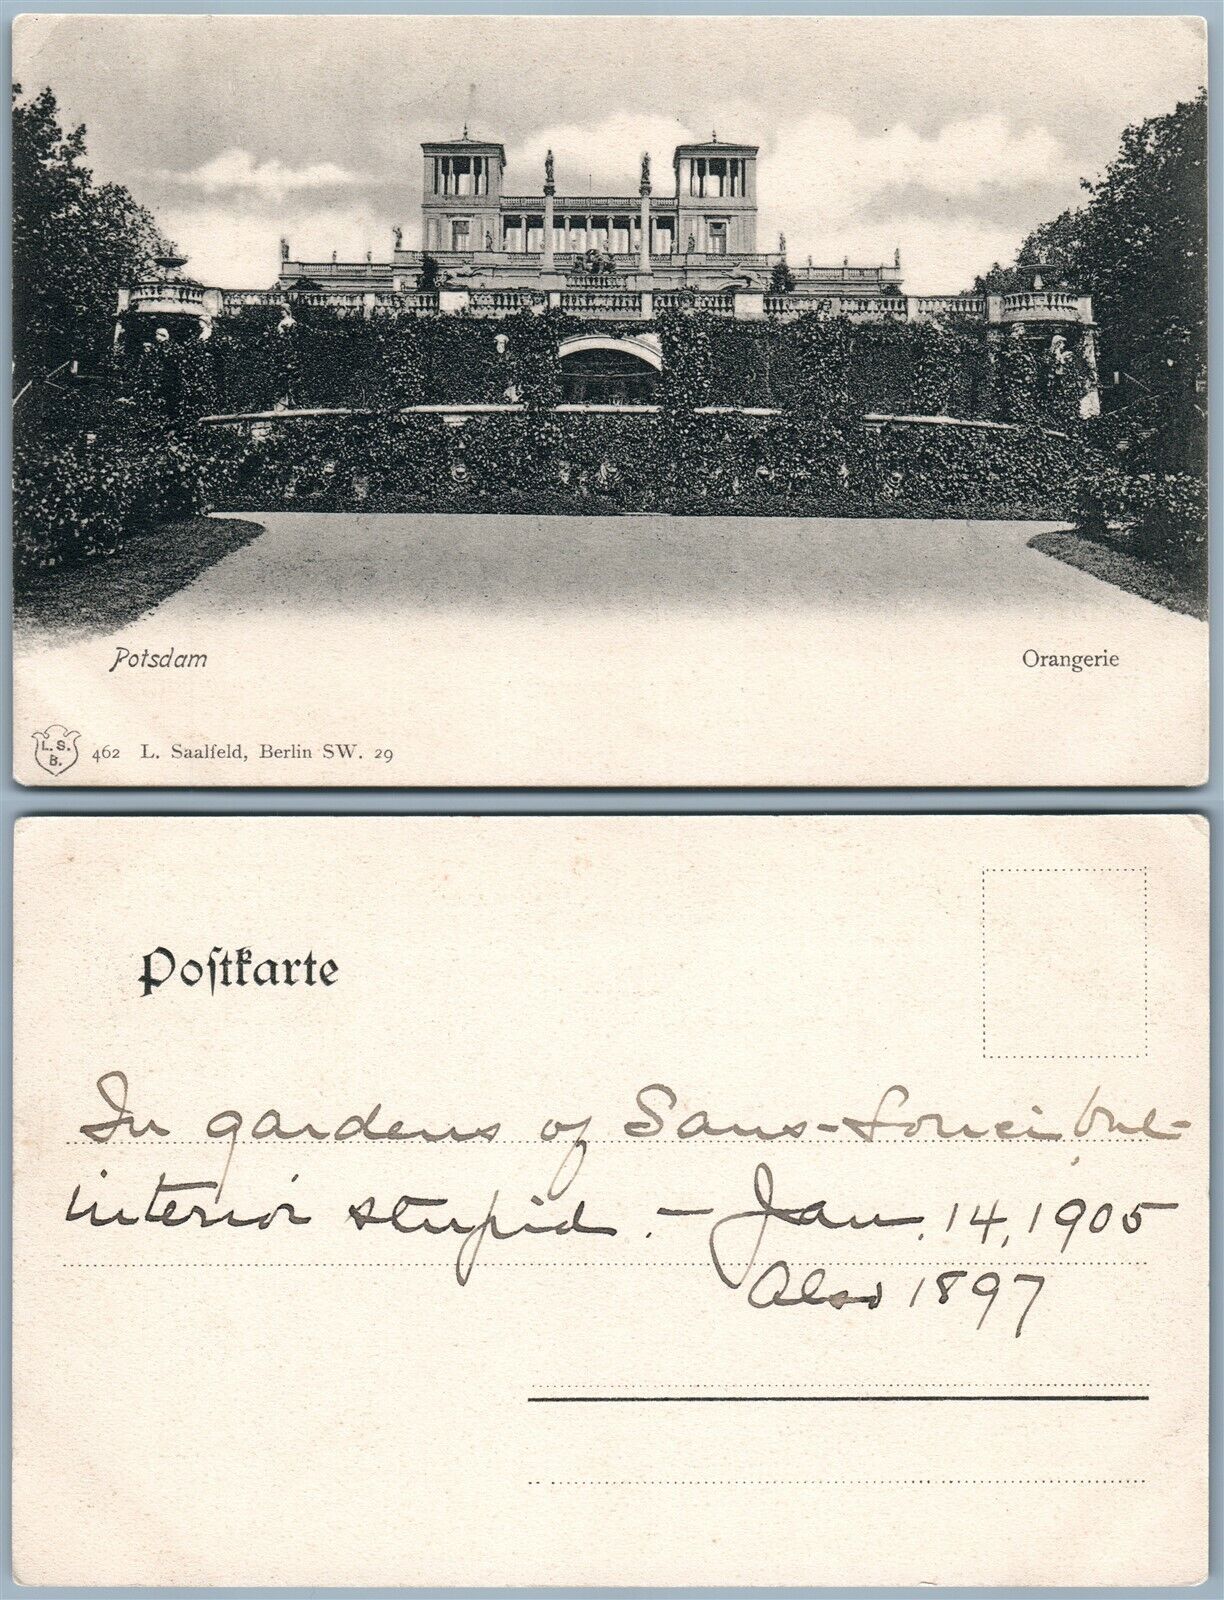 Potsdam
Orangerie
L. S.
B.
462 L. Saalfeld, Berlin SW. 29
Poſtkarte
In gardens of Sans-Souci but-
interior stupid. - Jan. 14, 1905
Also 1897